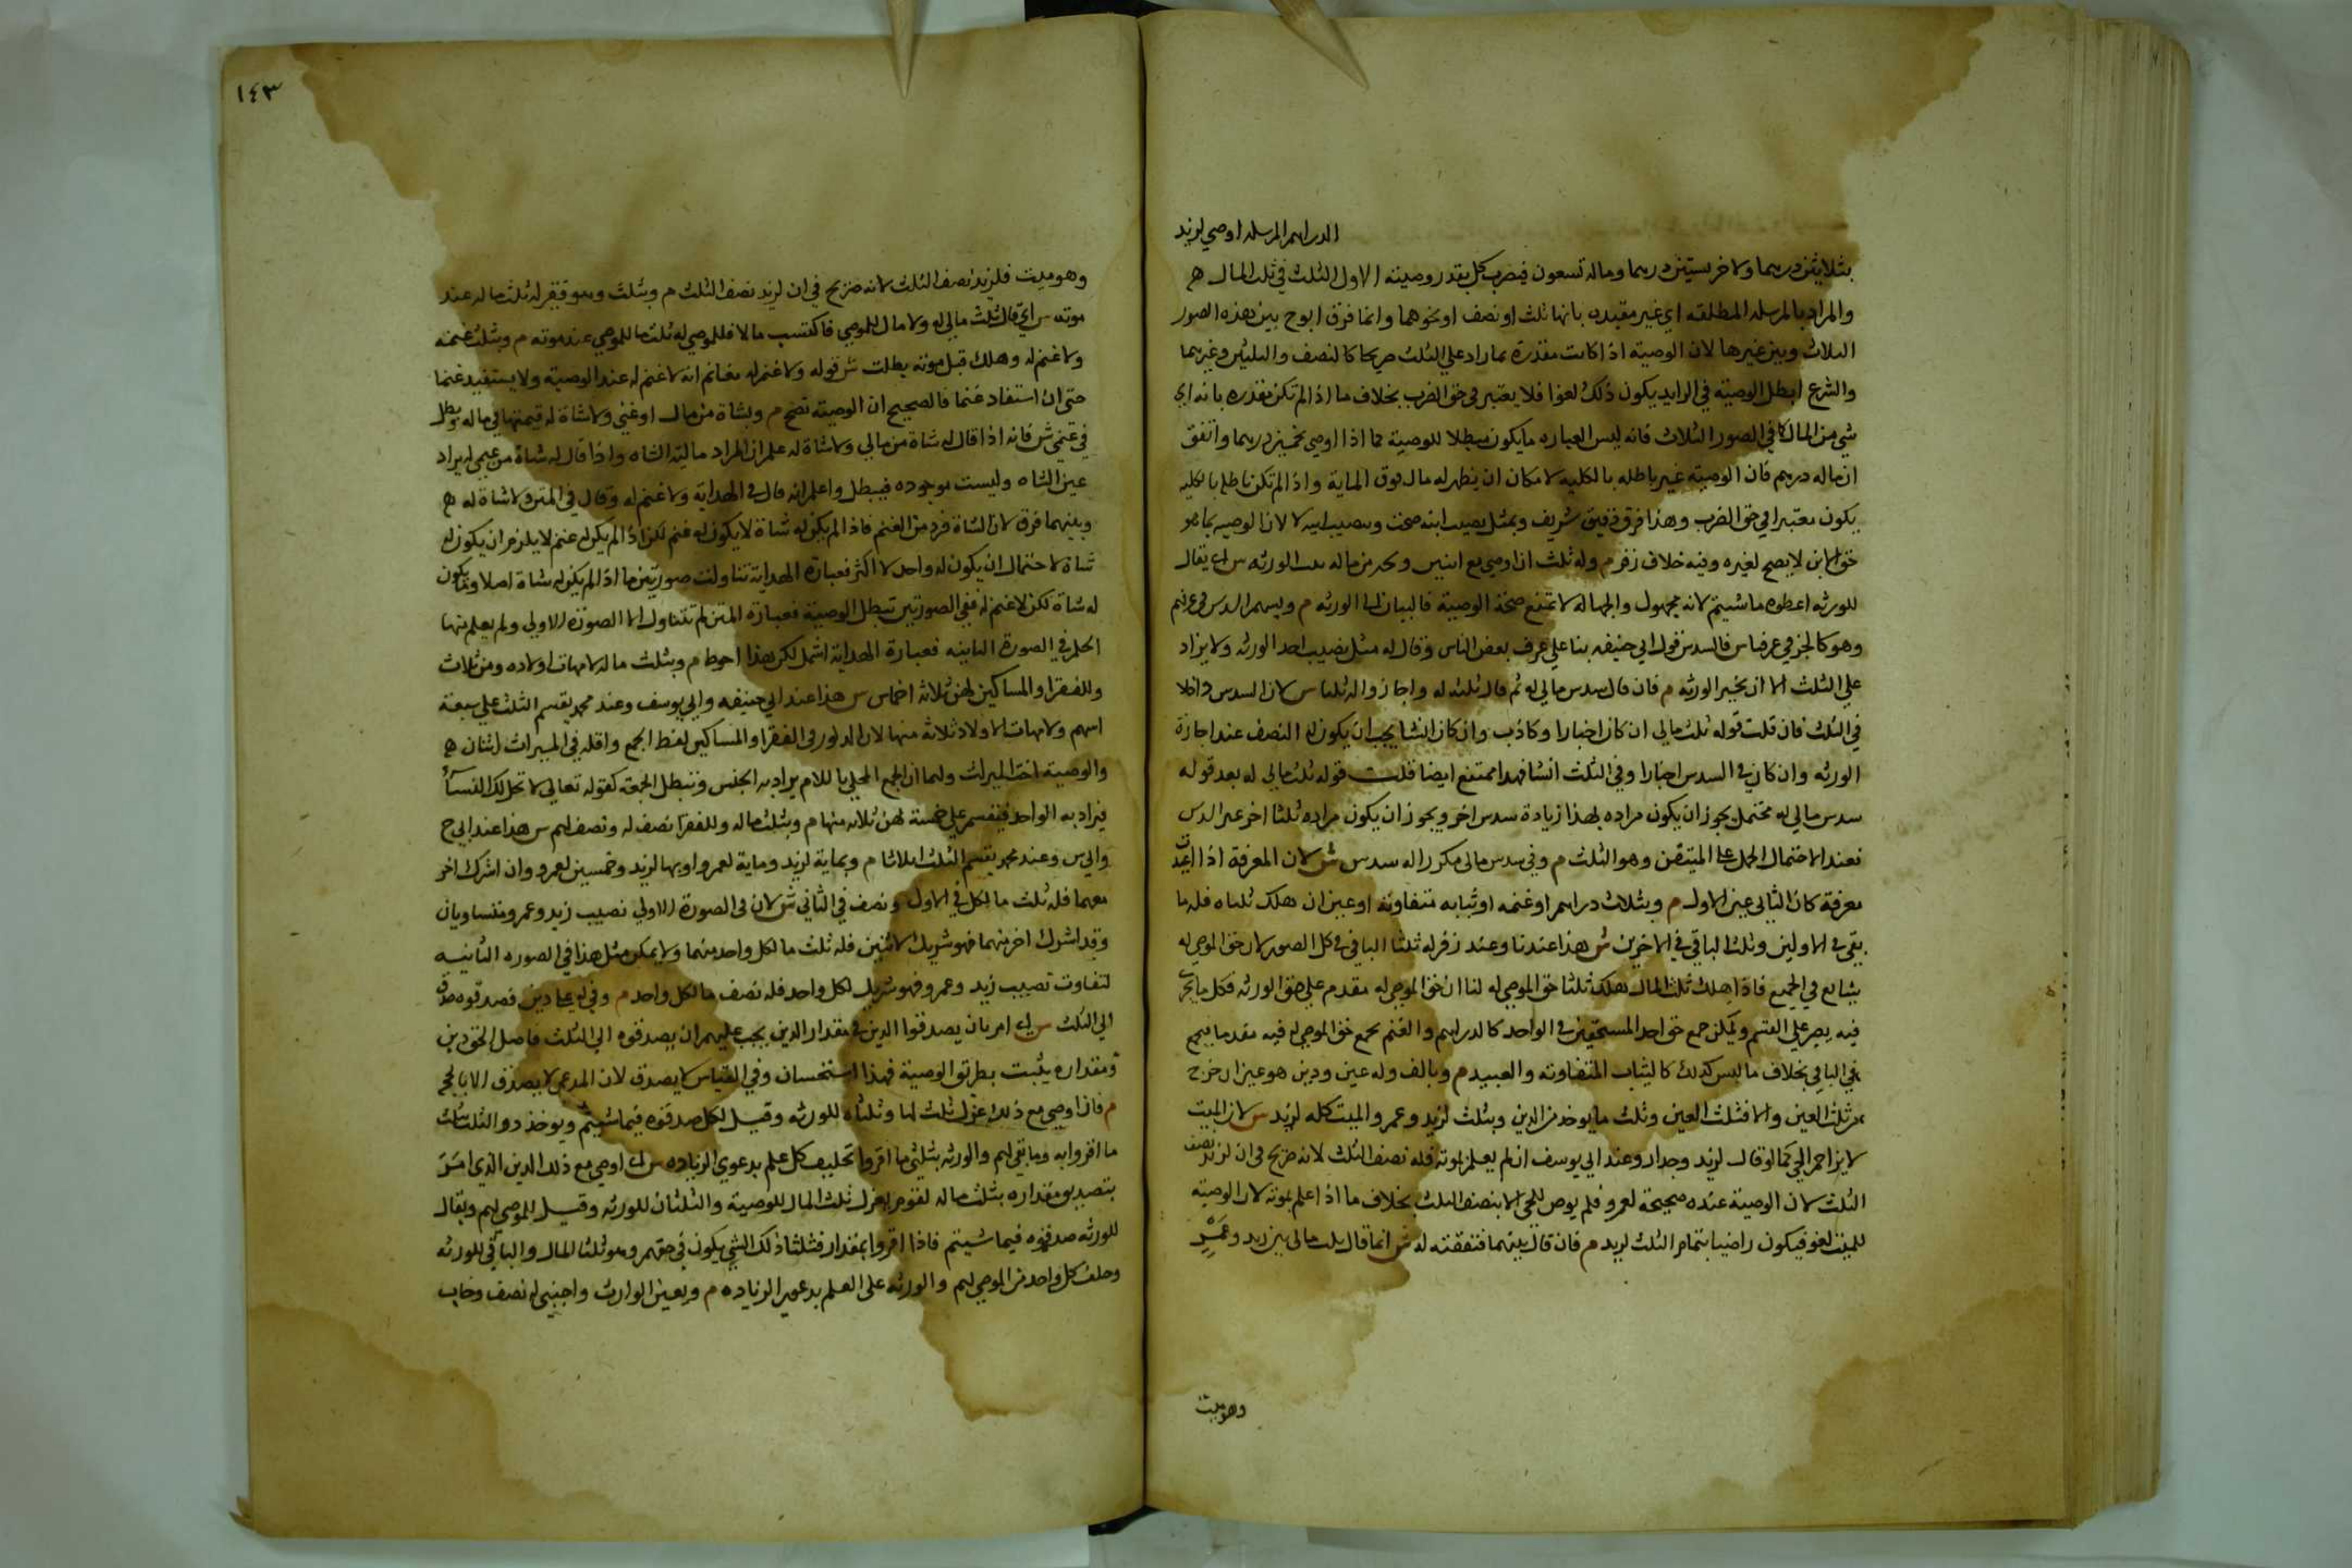 الدراهم المرسله اوصي لزيد
بثلاثين درهما ولاخر بستين درهما وماله تسعون فيضرب كل بقدر وصيته الاول الثلث في ثلث المال
والمراد بالمرسله المطلقه اي غير مقيده بانها ثلث او نصف او نحوهما وانما فرق ابوح بين هذه الصور
الثلاث وبين غيرها لان الوصيته اذا كانت مقدرة بما زاد علي الثلث صريحا كالنصف والثلثين وغيرهما
والشرع ابطل الوصيته في الزايد يكون ذكره لغوا فلا يعتبر في حق الضرب بخلاف ما اذا لم تكن مقدره بانه اي
شي من المال كما في الصور الثلاث فانه ليس في العباره ما يكون مبطلا للوصية كما اذا اوصي بخمسين درهما واتفق
ان ماله درهم فان الوصيته غير باطله بالكليه لامكان ان يظهر له مال فوق الماية واذا لم تكن باطله بالكليه
يكون معتبرا في حق الضرب وهذا فرق دقيق شريف وبمثل نصيب ابنه صحت وبنصيب ابنه لا لان الوصيه بما هو
حق الابن لا يصح لغيره وفيه خلاف زفر م وله ثلث ان اوصي مع ابنين وبجزء من ماله بينه الورثه س اي يقال
للورثه اعطوه ما شيتم لانه مجهول والجهاله لا تمنع صحة الوصية فالبيان الي الورثه م وبسهم السدس في عرفهم
وهو كالجز في عرفنا س فالسدس قول ابي حنيفه بنا علي عرف بعض الناس وقالا له مثل نصيب احد الورثه ولا يزاد
علي الثلث الا ان يجيز الورثه م فان قال سدس مالي له ثم قال ثلثه له واجازوا له ثلثه س لان السدس داخلا
في الثلث فان قلت قوله ثلث مالي ان كان اخبارا وكاذب وان كان انشا يجب ان يكون له النصف عند اجازة
الورثه وان كان في السدس اخبارا وفي الثلث انشا فهذا ممتنع ايضا قلت قوله ثلث مالي له بعد قوله
سدس مالي له محتمل يجوز ان يكون مراده بهذا زيادة سدس اخر ويجوز ان يكون مراده ثلثا اخر غير السدس
فعند الاحتمال الحمل علي المتيقن وهو الثلث م وفي سدس مالي مكررا له سدس ش لان المعرفة اذا اعيدت
معرفة كان الثاني عين الاول م وبثلث دراهمه او غنمه او ثيابه متفاوتة او عبيده ان هلك ثلثاه فله ما
بقي في الاولين وثلث الباقي في الاخرين ش هذا عندنا وعند زفر له ثلث الباقي في كل الصور لان حق الموصي له
شايع في الجميع فاذا هلك ثلثا المال هلك ثلثا حق الموصي له لنا ان حق الموصي له مقدم علي حق الورثه فكل ما يجري
فيه يجبر علي القسم ويمكن جمع حق احد المستحقين في الواحد كالدراهم والغنم يجمع حق الموصي له فيه مقدما فيجمع
في الباقي بخلاف ما ليس كذلك كالثياب المتفاوته والعبيد م وبالف وله عين ودين هو عين ان خرج
من ثلث العين والا فثلث العين وثلث ما يوخذ من الدين وبثلث لزيد وعمرو الميت كله لزيد س لان الميت
لا يزاحم الحي كما لو قال لزيد وجدار وعند ابي يوسف ان لم يعلم بموته فله نصف الثلث لانه صريح في ان لزيد نصف
الثلث لان الوصية عنده صحيحة لعمرو فلم يوص للحي الا بنصف الثلث بخلاف ما اذا علم بموته لان الوصيته
للميت لغو فيكون راضيا بتمام الثلث لزيد م فان قال بينهما فنصفه له ش انما قال ثلث مالي بين زيد وعمرو
وهو ميت
١٤٣
وهو ميت فلزيد نصف الثلث لانه صريح في ان لزيد نصف الثلث م وبثلث وهو فقير له ثلث ماله عند
موته س اي قال ثلث مالي له ولا مال للموصي فاكتسب مالا فللموصي له ثلث ما للموصي عند موته م وبثلث غنمه
ولا غنم له وهلك قبل موته بطلت ش قوله ولا غنم له معناه انه لا غنم له عند الوصية ولا يستفيد غنما
حتي ان استفاد غنما فالصحيح ان الوصيته تصح م وبشاة من مالي او غنمي ولا شاة له قيمتها في ماله وبطل
في غنمي ش فانه اذا قال له شاة من مالي ولا شاة له علم ان المراد مالية الشاه واذا قال له شاة من غنمي يراد
عين الشاه وليست موجوده فيبطل واعلم انه قال في الهداية ولا غنم له وقال في المتن ولا شاة له
وبينهما فرق لان الشاة فرد من الغنم فاذا لم يكن له شاة لا يكون له غنم لكن اذا لم يكن له غنم لا يلزم ان يكون له
شاة لاحتمال ان يكون له واحد لا اكثر فعبارة الهداية تناولت صورتين ما اذا لم يكن له شاة اصلا وما يكون
له شاة لكن لا غنم له ففي الصورتين تبطل الوصية فعبارة المتن لم تتناول الا الصورة الاولي ولم يعلم منها
الحكم في الصورة الثانيه فعبارة الهداية اشمل لكن هذا احوط م وبثلث ماله لامهات اولاده وهن ثلاث
وللفقرا والمساكين لهن ثلاثة اخماس س هذا عند ابي حنيفه وابي يوسف وعند محمد يقسم الثلث علي سبعة
اسهم ولامهات الاولاد ثلاثة منها لان المذكور في الفقرا والمساكين لفظ الجمع واقله في الميراث اثنان
والوصية اخت الميراث ولهما ان الجمع المحلي باللام يراد به الجنس وتبطل الجمعية كقوله تعالي لا تحل لك النسآء
فيراد به الواحد فيقسم علي خمسة لهن ثلاثه منها م وبثلث ماله وللفقرا نصف له ونصف لهم س هذا عند ابي ح
وابي س وعند محمد يقسم الثلث اثلاثا م وبماية لزيد وماية لعمرو او بها لزيد وخمسين لعمرو وان اشرك اخر
معهما فله ثلث ما لكل في الاول ونصف في الثاني ش لان في الصورة الاولي نصيب زيد وعمرو متساويان
وقد اشرك اخر منهما فهو شريك لاثنين فله ثلث ما لكل واحد منهما ولا يمكن مثل هذا في الصوره الثانيه
لتفاوت نصيب زيد وعمرو فهو شريك لكل واحد فله نصف ما لكل واحد م وفي له علي دين فصدقوه صدق
الي الثلث س اي امر بان يصدقوا الدين في مقدار الدين يجب عليهم ان يصدقوه الي الثلث فاصل الحق دين
ومقداره يثبت بطريق الوصية فهذا استحسان وفي القياس لا يصدق لان المدعي لا يصدق الا بالحجه
م فان اوصي مع ذلك عزل ثلث لها وثلثاه للورثه وقيل لكل صدقوه فيما شيتم ويوخذ ذو الثلث بثلث
ما اقروا به وما بقي لهم والورثه بثلثي ما اقروا وتحليف كل علم بدعوي الزياده س اي اوصي مع ذلك الدين الذي امر
بتصديق مقداره بثلث ماله لقوم يعزل ثلث المال للوصية والثلثان للورثه وقيل للموصي لهم ويقال
للورثه صدقوه فيما شيتم فاذا اقروا بمقدار فثلثا ذلك الشي يكون في حقهم وهو ثلثا المال والباقي للورثه
وحلف كل واحد من الموصي لهم والورثه علي العلم بدعوي الزياده م وبعين لوارث واجنبي له نصف وخاب